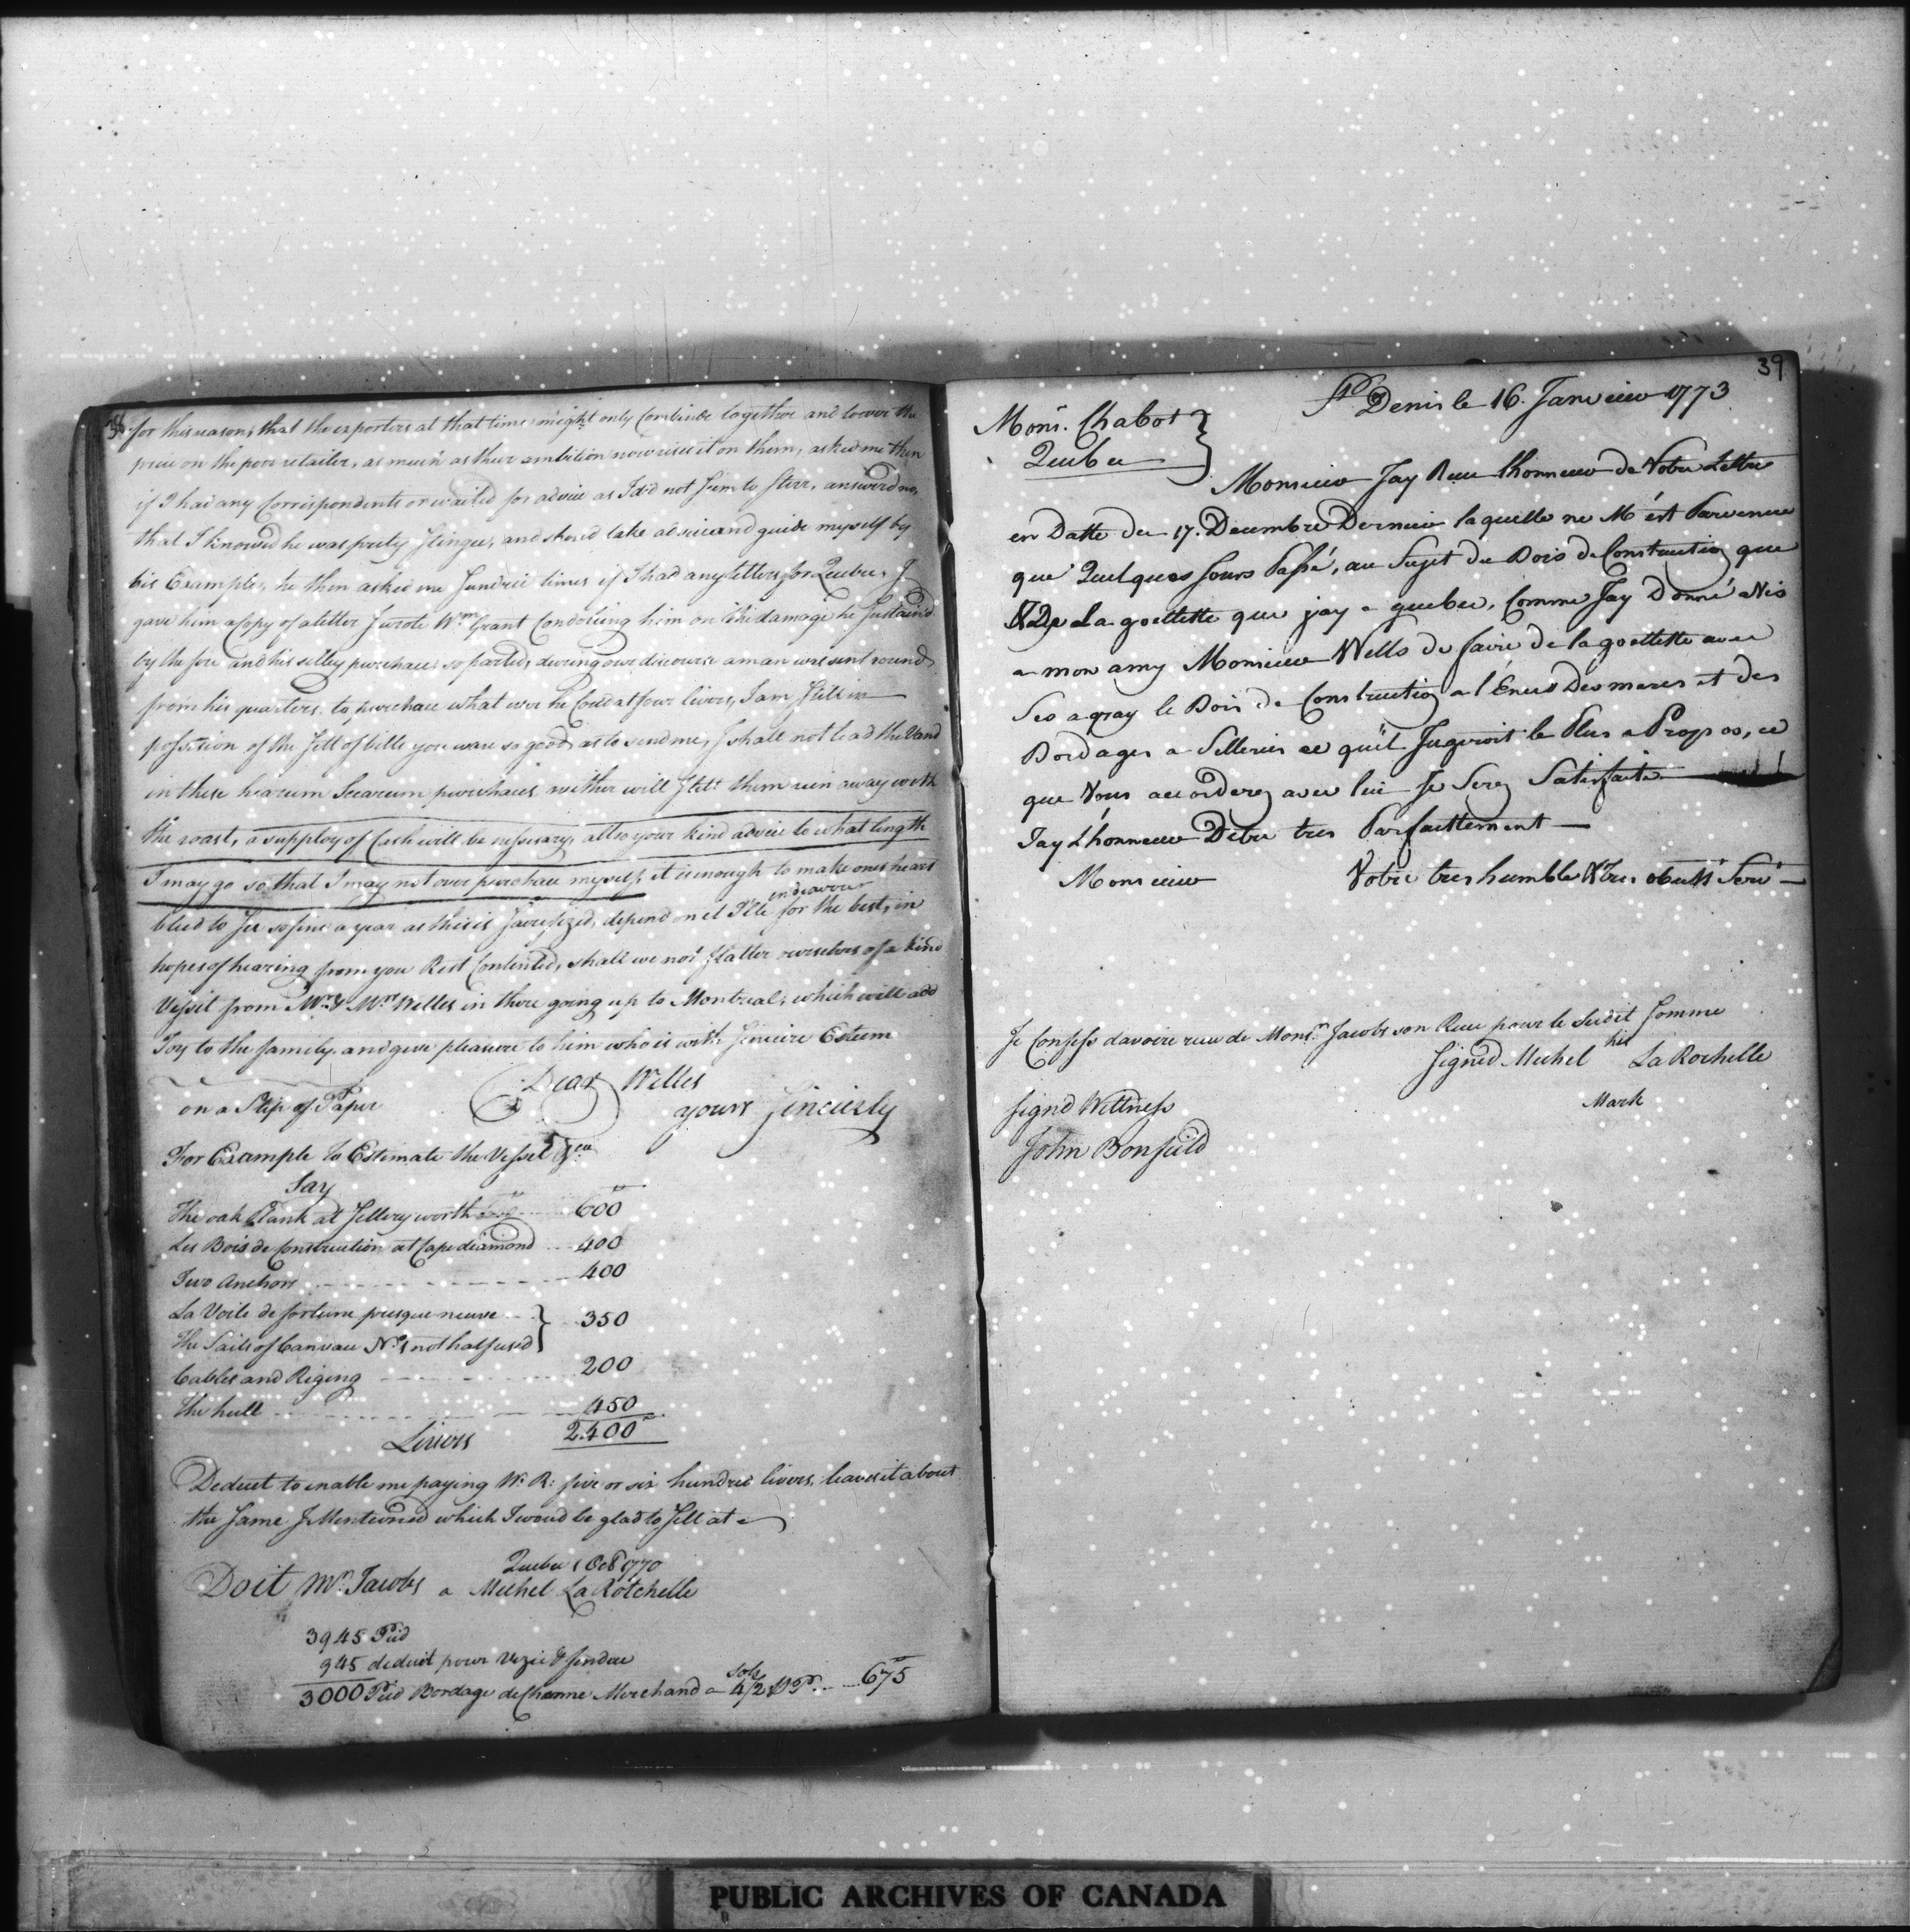 38
for this reason, that the exporters at that time might only Combinde together and lower the
price on the poor retailer, as much as their ambition now rises it on them, asked me then
if I had any Correspondents or waited for advice as I did not Seem to Stirr, answerd no,
that I knowed he was prety Stinger, and shoud take advice and guide myself by
his Example, he then asked me Sundrie times if I had any letters for Quebec, I
gave him a Copy of a letter I wrote Wm Grant Condoling him on the damage he Sustain'd
by the fire and his silley purchase so parted, during our discourse a man was sent round
from his quarters to purchase what ever he Coud at four livers, I am Still in
possession of the Sett of bills you ware so good as to send me, I shall not lead the Vand
in these hearum Scearum purchases neither will I lett them run away with
the roast, a supploy of Cash will be nessesary, allso your kind advice to what length
I may go so that I may not over purchase myself, it is enough to make ones heart
bleed to See so fine a year as this is Sacrifized, depend on it I'lle endeavour for the best, in
hopes of hearing from you Rest Contented, shall we not flatter ourselves of a kind
Vissit from Mr & Mrs Welles in there going up to Montreal, which will add
Joy to the family and give pleasure to him who is with Sincire Esteem
Dear Welles
on a Slip of Paper
yours Sincierly
For Example to Estimate the Vessel &ca
Say
The oak Plank at Sellery worth 600
Les Bois de Construction at Cape diamond 400
Two Anchors 400
La Voile de fortune presque neuve
The Sails of Canvace No 1 not half used } 350
Cables and Riging 200
The hull 450
Livers 2.400
Deduct to enable me paying W. R: five or six hundred livers, leaves it about
the Same I Mentioned which I woud be glad to Sell at
Quebec 1 Oct 1770
Doit Mr Jacobs a Michel La Rotchelle
3945 Pied
945 deduit pour Vezie & fendue
3000 Pied Bordage de Chenne Merchand a 4/2 sols P P. 675
39
St Denis le 16. Janvieer 1773
Monsr. Chabot }
Quebec
Monsieur Jay Recu lhonneur de Votre Lettre
en Datte du 17. Decembre Dernier laquelle ne M'ést Parvenue
que Quelques Jours Passé, au Sujet du Bois de Construction que
& De La goellette que jay a quebec, Comme Jay Donné avis
a mon amy Monsieur Wells de faire de la goellette avec
Ses agray le Bois de Construction a l'Encs Des meres et des
Bordages a Sillerie ce qu'il Jugeroit le Plus a Propos, ce
que Vous accorderez avec lui Je Serez Satisfaite
Jay L'honneur Detre tres Parfaittement
Monsieur Votre tres humble & tres obeisst Servt
Je Confess davoire recu de Monsr. Jacobs son Recu pour le Sudit Somme
Signed Michel his La Rochelle
Mark
Signd Wittness
John Bonfield
PUBLIC ARCHIVES OF CANADA